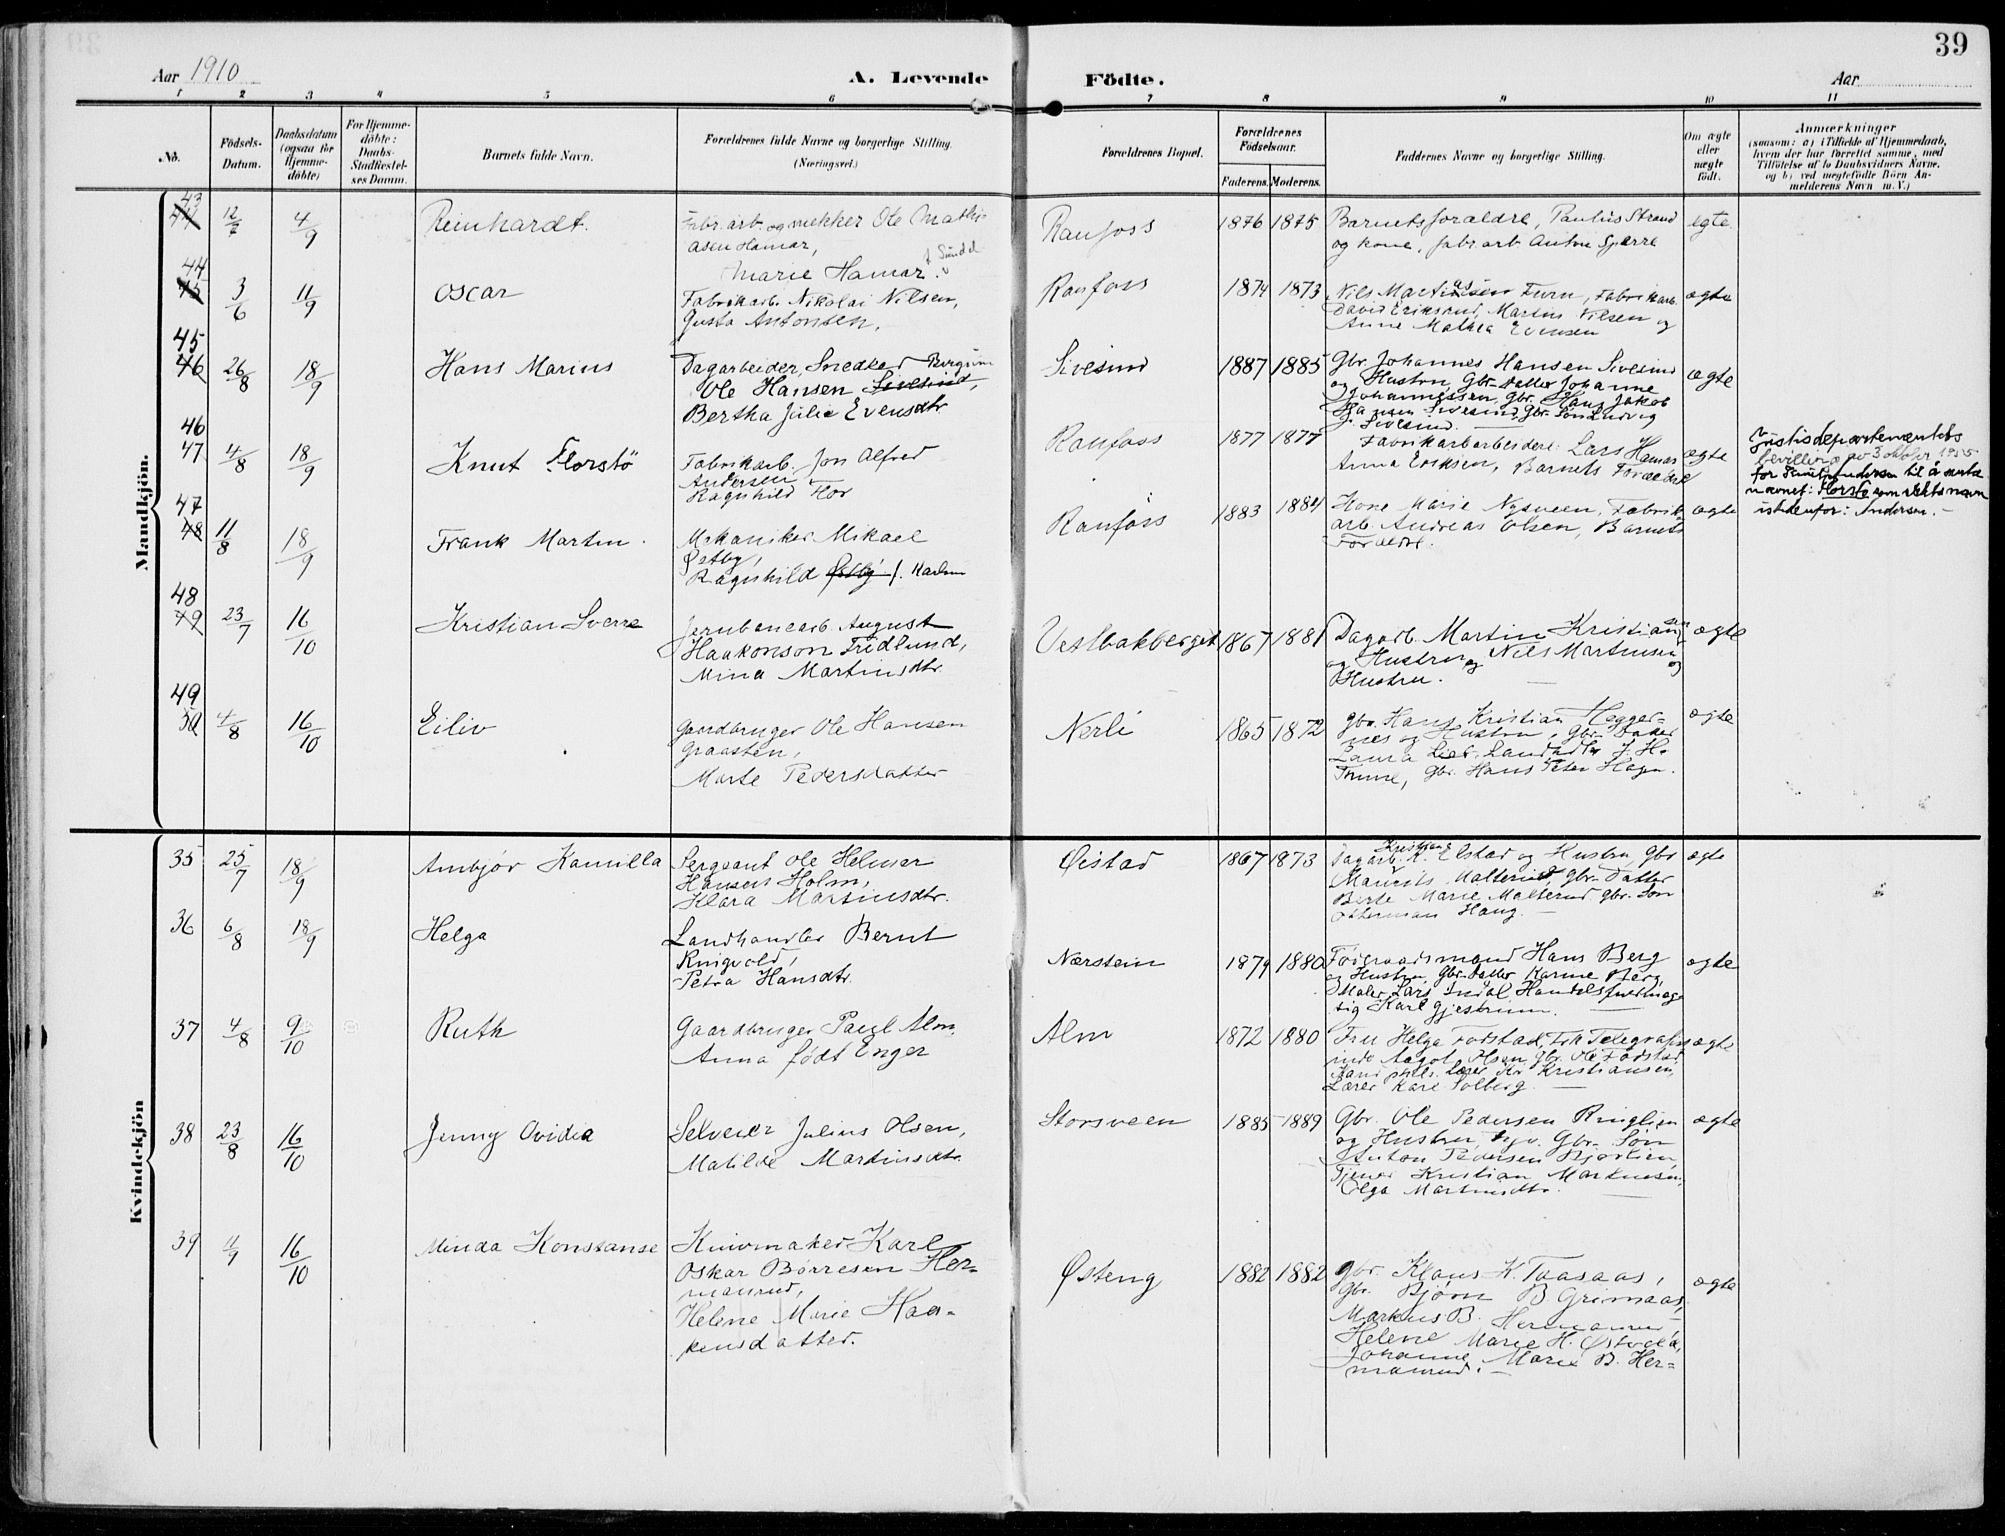 39
Aar 1910
A. Levende
Födte.
Aar
1 2 3 4 5 6 7 8 9 10 11
No.
Födsels-
Datum.
Daabsdatum
(ogsaa for
Hjemme-
döbte)
For Hjemme-
döbte:
Daabs-
Stadfæstel-
ses Datum.
Barnets fulde Navn.
Forældrenes fulde Navne og borgerlige Stilling.
(Næringsvei.)
Forældrenes Bopæl.
Forældrenes
Födselsaar.
Faderens.
Moderens.
Faddernes Navne og borgerlige Stilling.
Om ægte
eller
uægte
födt.
Anmærkninger
(saasom: a) i Tilfælde af Hjemmedaab,
hvem der har forrettet samme, med
Tilföielse af to Daabsvidners Navne,
og b) ved uegtefödte Börn An-
melderens Navn m. V.)
Mandkjön.
43
44
12/7
4/9
Reinhardt.
Fabr. arb. og snekker Ole Mathi-
asen Hamar,
Marie Hamar
Raufoss
1876
1875
Barnets forældre, Paulus Strand
og kone, fabr arb Anton Sperre
egte
44
45
3/6
11/9
Oscar
Fabrikarb. Nikolai Nilsen,
Gusta Antonsen.
Raufoss
1874
1873
Nils Martinsen Furu, Fabrikarb.
David Eriksrud, Martin Nilsen og
Anne Mathea Evensen
ægte
45
46
26/8
18/9
Hans Marius
Dagarbeider, Snedker
Ole Hansen Sivesind,
Bertha Julie Evensdtr
Sivesind
1887
1885
Gbr. Johannes Hansen Sivesind
og Hustru, Gbr. datter Johanne
Johannessen, Gbr. Hans Jakob
Hansen Sivesind, Gbr. Søn Ludvig
J. Sivesind.
ægte
46
47
4/8
18/9
Knut Florstö
Fabrikarb. Jon Alfred
Andersen
Ragnhild Flor
Raufoss
1877
1877
Fabrikarbarbeidere: Lars Hamar
Anna Eriksen, Barnets Forældre
ægte
Justisdepartementets
bevilling av 3 oktober 1955
for Knut Andersen til å anta
navnet: Florstö som slektsnavn
istedenfor: Andersen. -
47
48
11/8
18/9
Frank Martin.
Mekaniker Mikael
Østby,
Ragnhild Østby f. Karlsen
Raufoss
1883
1884
Kone Marie Nysveen, Fabrik-
arb. Andreas Olsen, Barnets
Forældre.
ægte
48
49
23/7
16/10
Kristian Sverre
Jernbanearb. August
Haakonson Fridlund,
Mina Martinsdtr.
Vestbakberget
1867
1881
Dagarb. Martin Kristiansen
og Hustru og Nils Martinsen og
Hustru.
ægte
49
50
4/8
16/10
Eiliv
Gaardbruger Ole Hansen
Graasten,
Marte Pedersdatter
Nerli
1865
1872
Gbr. Hans Kristian Hegger-
næs og Hustru, Gbr. Datter
Laura Lier, Landhdlr J. H.
Trune, Gbr. Hans Peter Hagen.
ægte
Kvindekjön
35
25/7
18/9
Ambjør Kamilla
Sergeant Ole Helmer
Hansen Holm,
Klara Martinsdtr.
Øistad
1867
1873
Dagarb. K. Elstad og Hustru, Gbr
Maurits Malterud, Gbr. Datter
Berte Marie Malterud Gbr. Søn
Haug.
ægte
36
6/8
18/9
Helga
Landhandler Bernt
Ringvold,
Petra Hansdtr.
Nærstein
1879
1880
Føderaadsmand Hans Berg
og Hustru, Gbr. Datter Karine Berg,
Maler Lars Indal, Handelsfuldmæg-
tig Karl Gjestrum.
ægte
37
4/8
9/10
Ruth
Gaardbruger Paul Alm,
Anna født Enger
Alm
1872
1880
Fru Helga Fodstad, Frk Telegrafist-
inde Aagot Olsen, Gbr. Ole Fodstad,
Lærer Kr Kristiansen,
Lærer Karl Solberg.
ægte
38
23/8
16/10
Jenny Ovidia
Selveier Julius Olsen,
Matilde Martinsdtr.
Storsveen
1885
1889
Gbr. Ole Pedersen Ringlien
og Hustru, Gbr. Søn
Anton Pedersen Bjørlien,
Tjener Kristian Martinsen,
Olga Martinsdtr.
ægte
39
11/9
16/10
Minda Konstanse
Knivmaker Karl
Oskar Børresen Her-
manrud,
Helene Marie Haa-
kensdatter.
Østeng
1882
1882
Gbr. Klaus K. Taasaas,
Gbr. Bjørn B Grimaas,
Markus B. Hermanrud
Helene Marie H. Østvold,
Johanne Marie B. Her-
manrud.
ægte